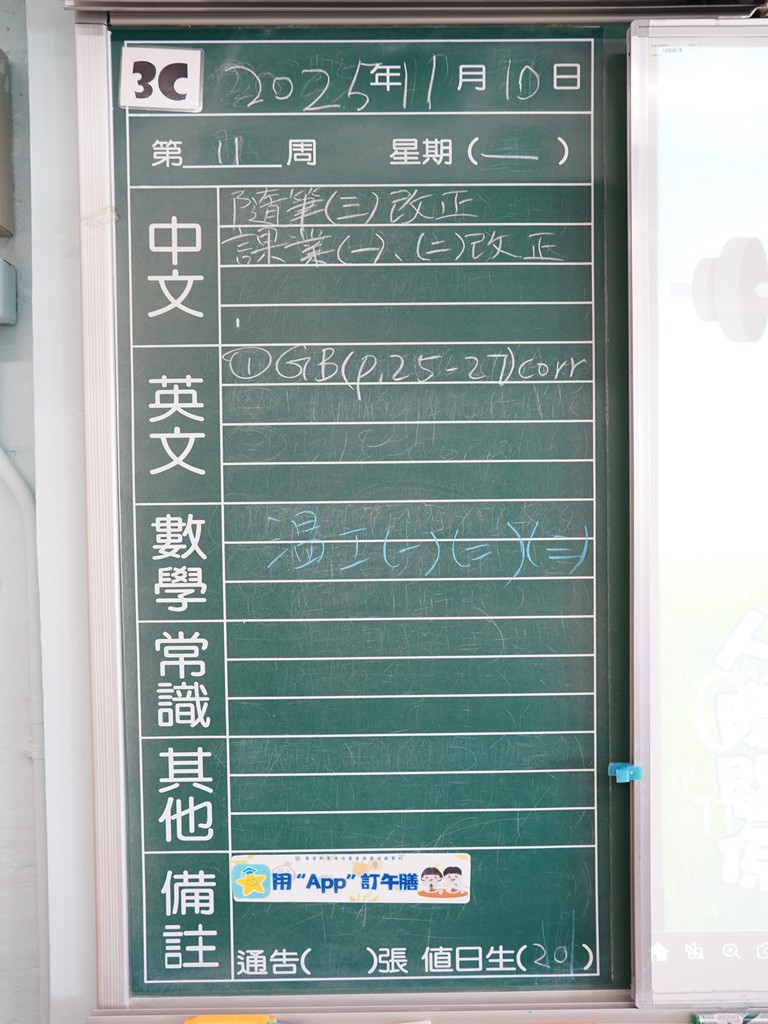 3C 2025年11月10日
第11周 星期(一)
中文
隨筆(三)改正
課業(一)、(二)改正
英文
①GB(p.25-27)corr
數學
温工(一)(二)(三)
常識
其他
備註
用“App”訂午膳
通告( )張 值日生(20)
人際關係